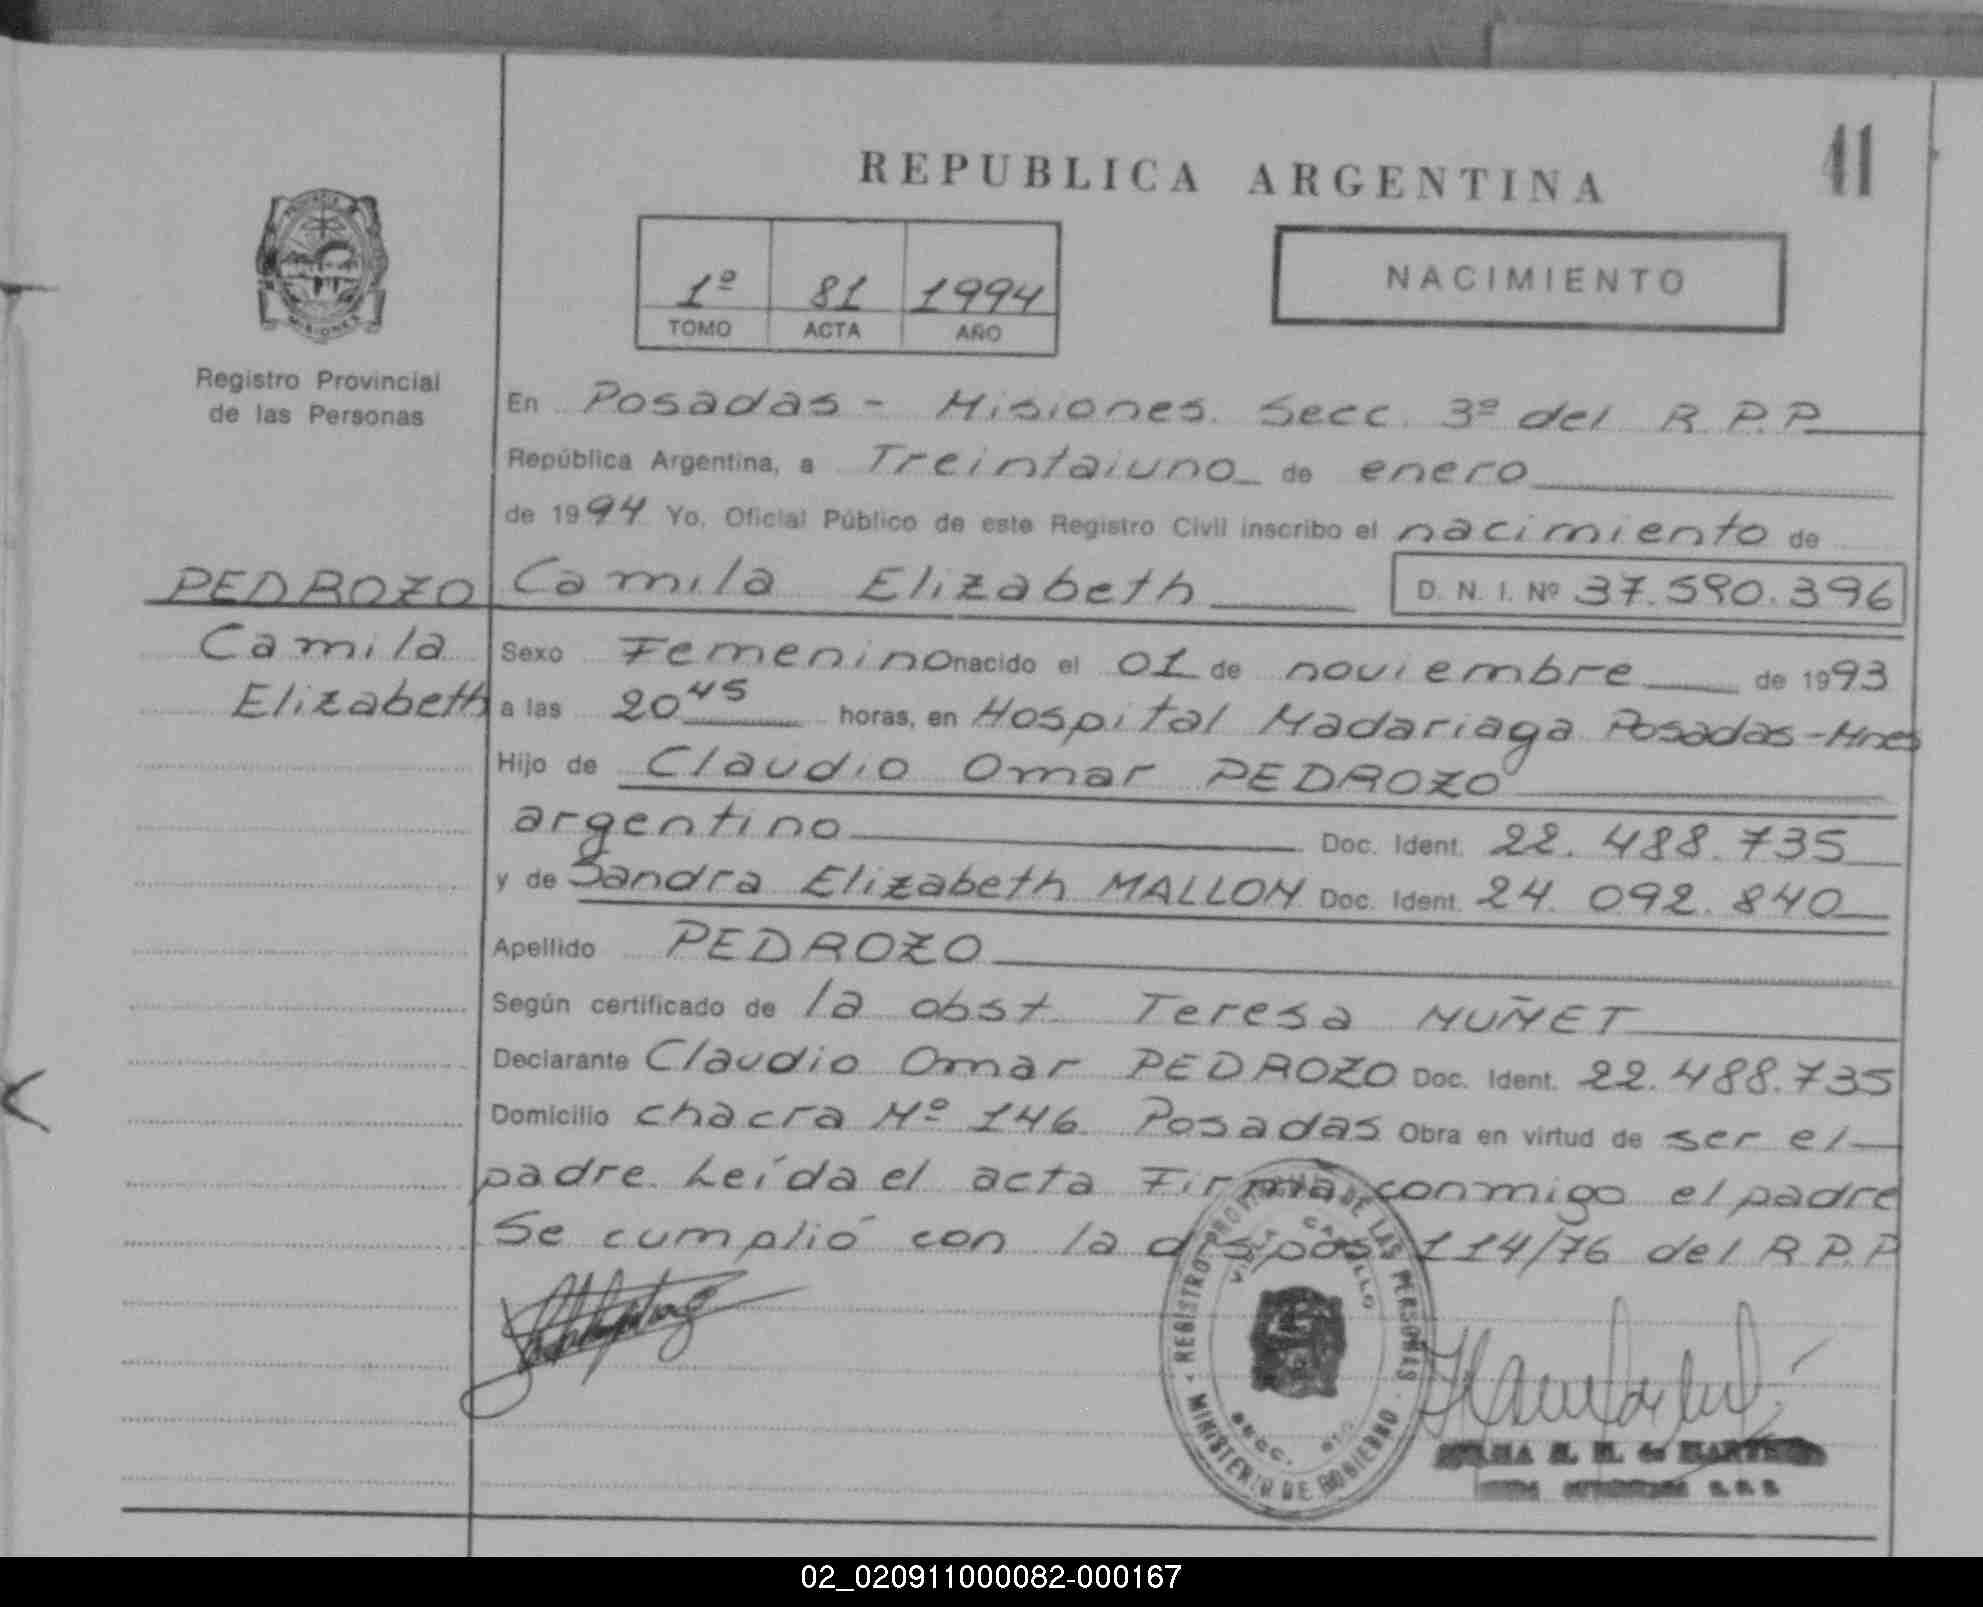 REPUBLICA ARGENTINA
41
1º 81 1994
TOMO ACTA AÑO
NACIMIENTO
MISIONES
Registro Provincial
de las Personas
En Posadas - Misiones. Secc. 3º del R.P.P.
República Argentina, a Treintaiuno de enero
de 1994 Yo, Oficial Público de este Registro Civil inscribo el nacimiento de
PEDROZO Camila Elizabeth D. N. I. Nº 37.590.396
Camila
Elizabeth
Sexo Femenino nacido el 01 de noviembre de 1993
a las 20 45 horas, en Hospital Madariaga Posadas-Mnes
Hijo de Claudio Omar PEDROZO
argentino Doc. Ident. 22.488.735
y de Sandra Elizabeth MALLON Doc. Ident. 24.092.840
Apellido PEDROZO
Según certificado de la obst. Teresa MUÑET
Declarante Claudio Omar PEDROZO Doc. Ident. 22.488.735
Domicilio chacra Nº 146 Posadas Obra en virtud de ser el
padre. Leída el acta Firma conmigo el padre
Se cumplió con la dispos. 114/76 del R.P.P
REGISTRO PROV. DE LAS PERSONAS
MINISTERIO DE GOBIERNO
SECC.
02_020911000082-000167